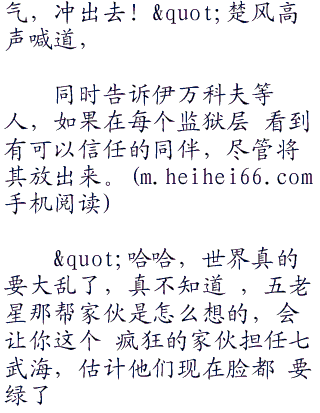 气，冲出去！&quot;楚风高
声喊道，
同时告诉伊万科夫等
人，如果在每个监狱层 看到
有可以信任的同伴，尽管将
其放出来。(m.heihei66.com
手机阅读)
&quot;哈哈，世界真的
要大乱了，真不知道 ，五老
星那帮家伙是怎么想的，会
让你这个 疯狂的家伙担任七
武海，估计他们现在脸都 要
绿了